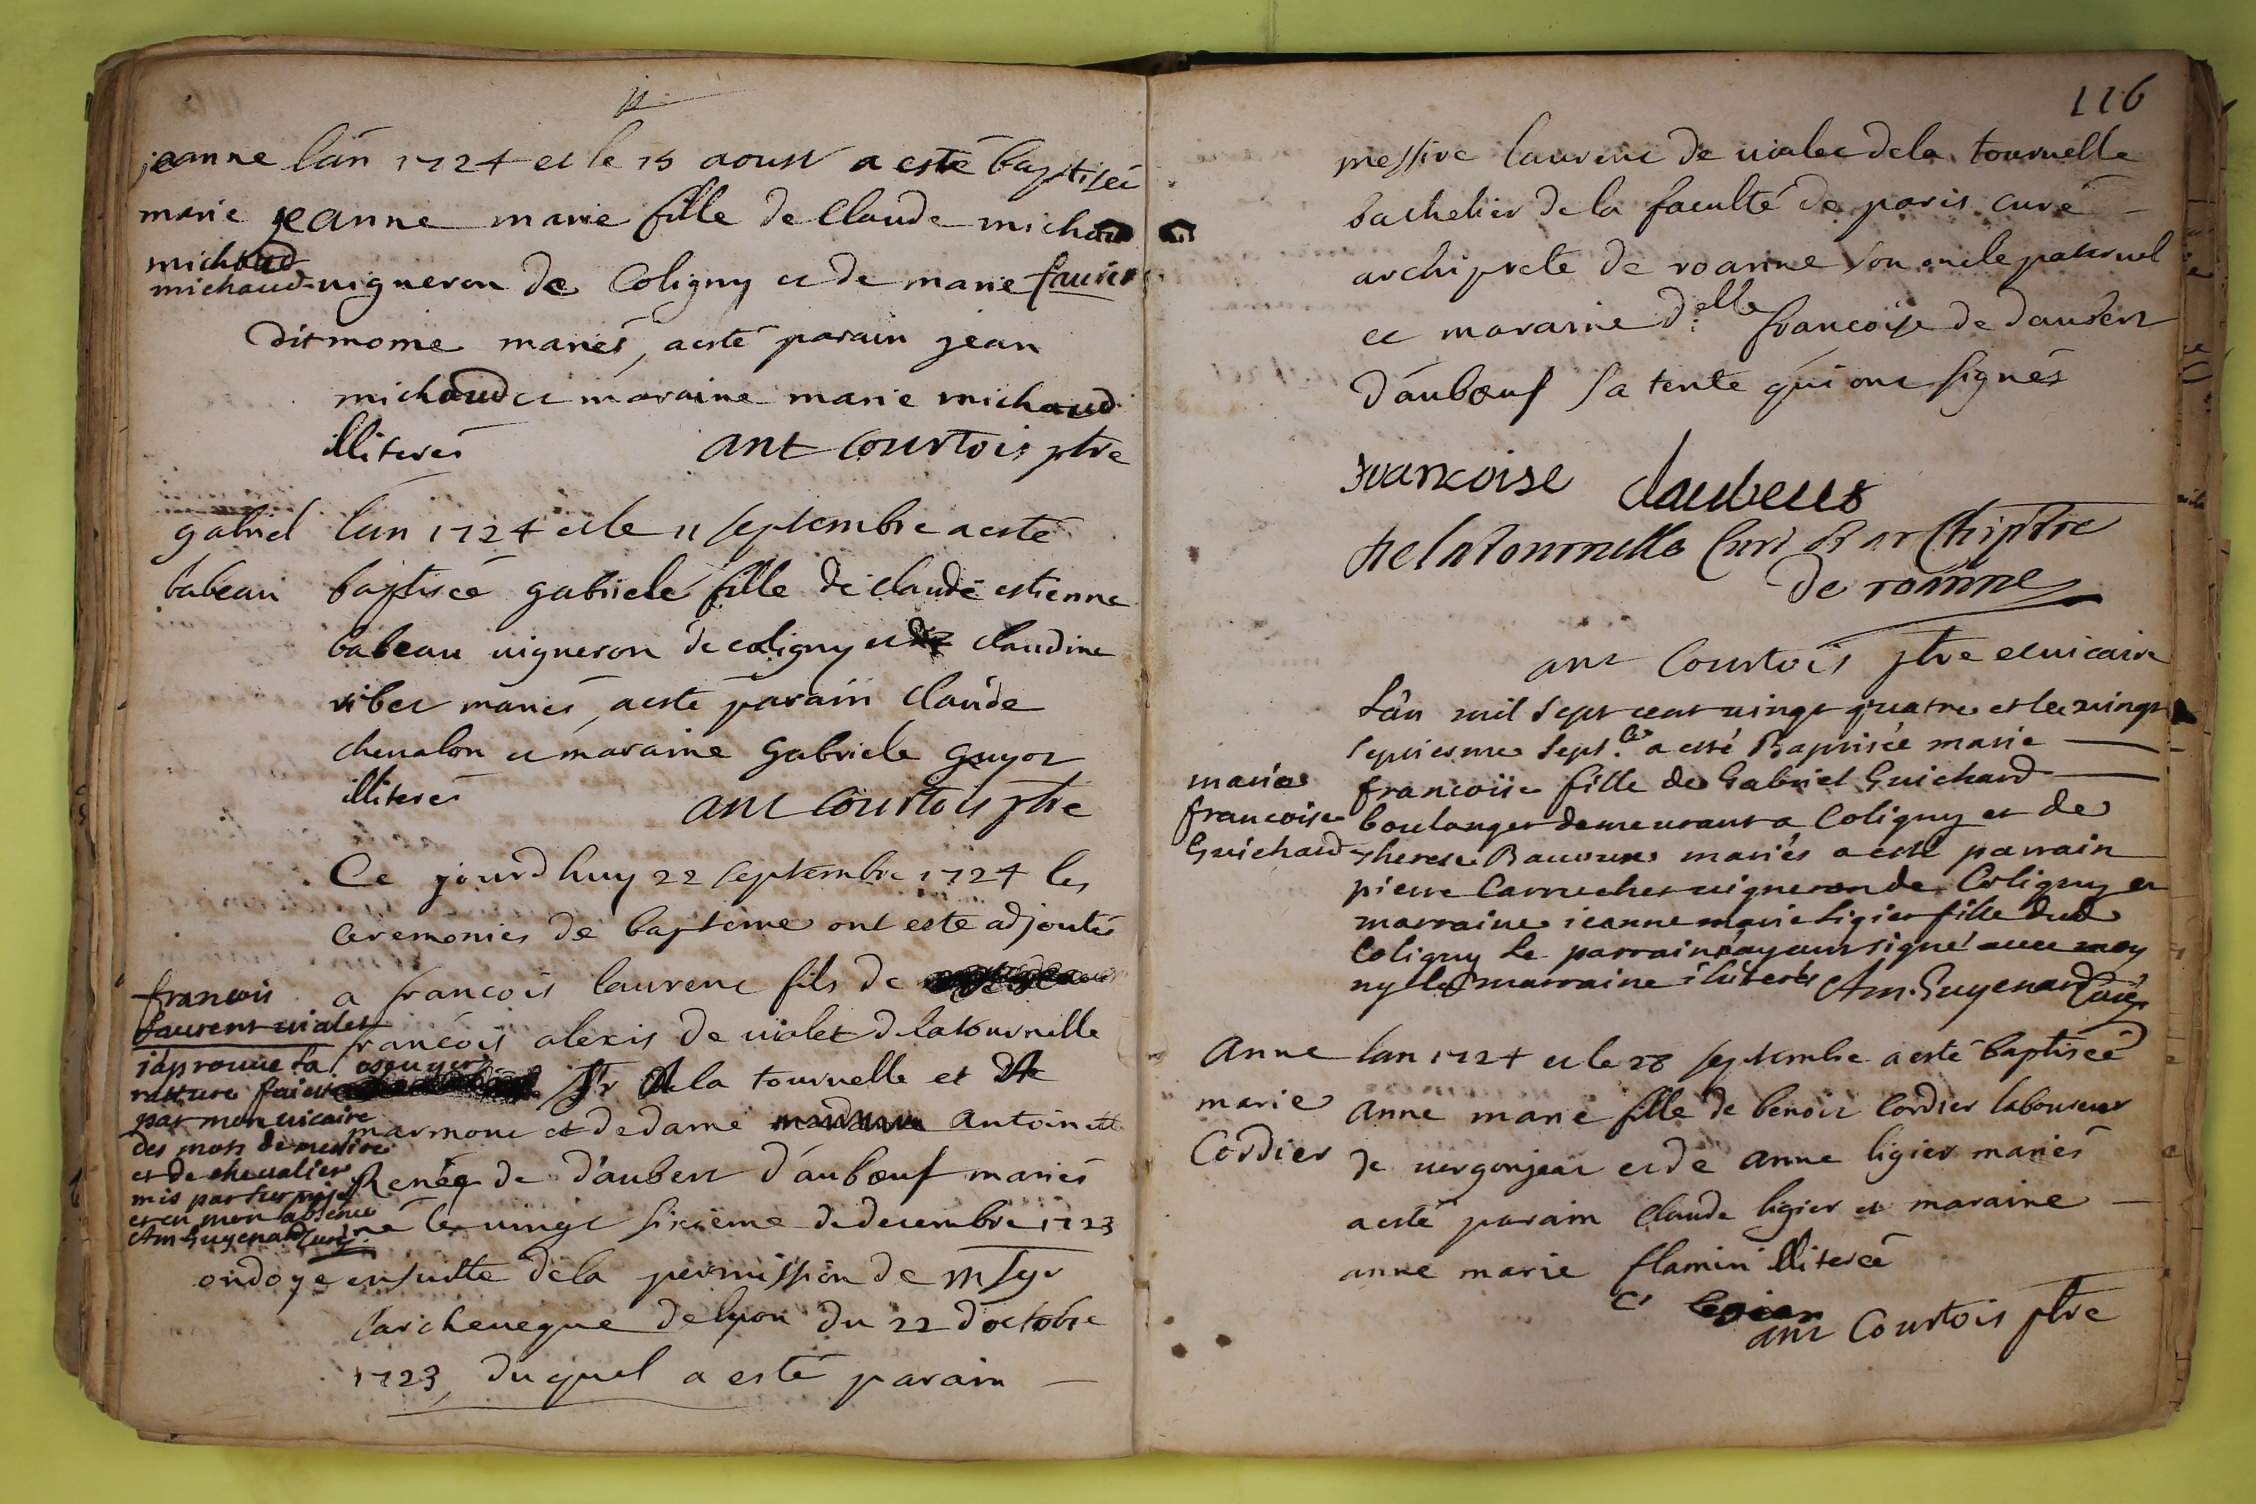 jeanne
marie
michaud
michaud
lán 1724 et le 15 aoust a esté baptiseé
jeanne marie fille de Claude michaud
vigneron de Coligny et de marie
dit mome mariés, a esté parain jean
michaud et maraine marie michaud
illiterés ant Courtois ptre
gabriel
babeau
lan 1724 et le 11 septembre a esté
baptiseé gabriele fille de claude estienne
babeau vigneron de coligny et de claudine
ribet mariés, a esté parain claude
chevalon et maraine Gabriele guyot
illiterés ant Courtois ptre
Ce jourdhuy 22 septembre 1724 les
ceremonies de bapteme ont esté adjoutés
francois
laurent vialet
a francois laurent fils de
françois alexis de vialet de la tournelle
escuyer Sr de la tournelle et de
marmont et de dame antoinette
Renéé de d'aubert d'aubœuf mariés
né le vingt sixieme de decembre 1723
japrouve la
rature faicte
par mon vicaire
des mots de messire
et de chevalier
mis par surprise
et en mon absence
Am Guyenard Curé
ondoye ensuitte de la permission de msgr
larcheveque de lyon du 22 d'octobre
1723, duquel a esté parain
116
messire laurent de vialet de la tournelle
bachelier de la faculté de paris curé
archiprete de roanne son oncle paternel
et maraine delle francoise de daubert
d'aubœuf sa tente qui ont signés
francoise daubeuf
De la Tournelle Curé et archiptre
de roanne
ant Courtois ptre et vicaire
marie
francoise
Guichard
Lán mil sept cent vingt quatre et le vingt
septiesme Sept.bre a esté Baptisée marie
francoise fille de Gabriel Guichard
boulanger demeurant a Coligny et de
therese mariés a esté parrain
pierre Carrucher vigneron de Coligny et
marraine jeanne marie Ligier fille dud
Coligny le parrain ayant signé avec moy
marraine illiterés Am. Guyenard Curé
Anne
marie
Cordier
lan 1724 et le 28 septembre a esté baptiseé
anne marie fille de benoit Cordier laboureur
de vergonjeat et de anne ligier mariés
a esté parain Claude ligier et maraine
anne marie flamin illitereé
C. legier
ant Courtois ptre